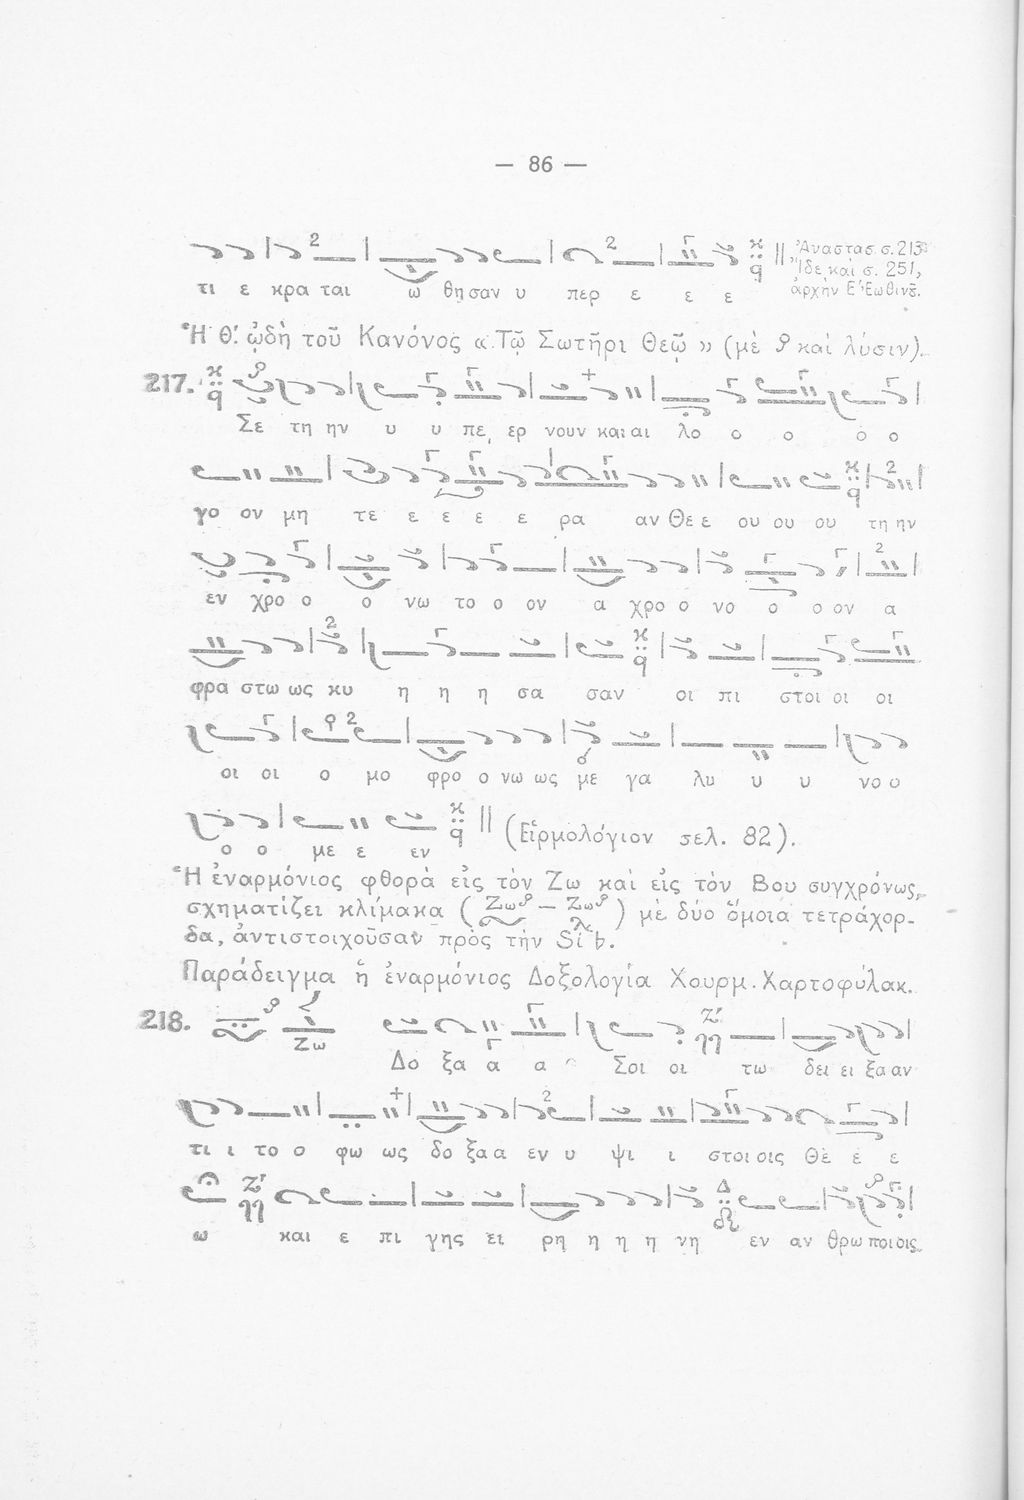 — 86 —
Ἀναστασ. σ. 213
Ἴδε καὶ σ. 251,
ἀρχὴν Ε΄ Ἑωθινοῦ.
τι ε κρα ται ω θη σαν υ περ ε ε ε
Ἡ Θ΄. ᾠδὴ τοῦ Κανόνος «Τῷ Σωτῆρι Θεῷ» (μὲ καὶ λύσιν).
217.
Σε τη ην υ υ πε ερ νουν και αι λο ο ο ο ο
γο ον μη τε ε ε ε ε ρα αν Θε ε ου ου ου τη ην
εν χρο ο ο νω το ο ον α χρο ο νο ο ο ον α
φρα στω ως κυ η η η σα σαν οι πι στοι οι οι
οι οι ο μο φρο ο νω ως με γα λυ υ υ νο ο
ο ο με ε εν (Εἱρμολόγιον σελ. 82).
Ἡ ἐναρμόνιος φθορὰ εἰς τὸν Ζω καὶ εἰς τὸν Βου συγχρόνως,
σχηματίζει κλίμακα (Ζω — Ζω) μὲ δύο ὅμοια τετράχορ-
δα, ἀντιστοιχοῦσαν πρὸς τὴν Si b.
Παράδειγμα ἡ ἐναρμόνιος Δοξολογία Χουρμ. Χαρτοφύλακ.
218. Ζω
Δο ξα α α Σοι οι τω δει ει ξα αν
τι ι το ο φω ως δο ξα α εν υ ψι ι στοι οις Θε ε ε
ω και ε πι γης ει ρη η η η νη εν αν θρω ποι οις